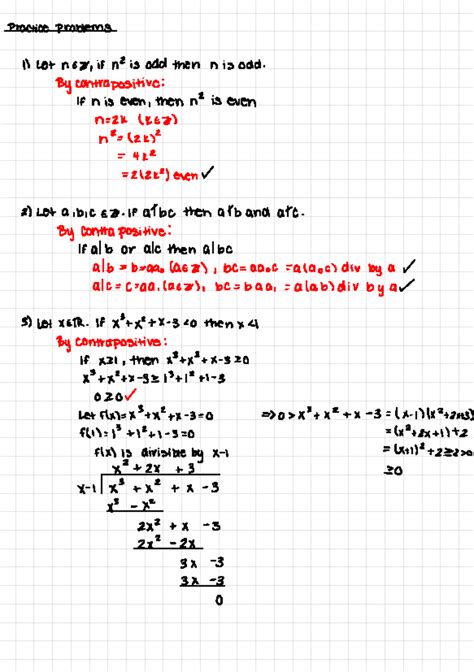 Practice Problems
1) Let n∈ℤ, if n² is odd then n is odd.
By contrapositive:
If n is even, then n² is even
n=2k (k∈ℤ)
n²=(2k)²
= 4k²
=2(2k²) even ✓
2) Let a,b,c ∈ℤ. If a∤bc then a∤b and a∤c.
By contrapositive:
If a|b or a|c then a|bc
a|b = b=aa₀ (a∈ℤ), bc=aa₀c =a(a₀c) div by a ✓
a|c = c=aa₁ (a₁∈ℤ), bc=baa₁ =a(ab) div by a ✓
3) Let x∈ℝ. If x³+x²+x-3<0 then x<1
By contrapositive:
If x≥1, then x³+x²+x-3≥0
x³+x²+x-3≥1³+1²+1-3
0≥0 ✓
Let f(x)=x³+x²+x-3=0
f(1)=1³+1²+1-3=0
f(x) is divisible by x-1
x²+2x+3
x-1 | x³+x²+x-3
x³-x²
2x²+x-3
2x²-2x
3x-3
3x-3
0
⇒0>x³+x²+x-3=(x-1)(x²+2x+3)
=(x²+2x+1)+2
=(x+1)²+2≥2>0
≥0